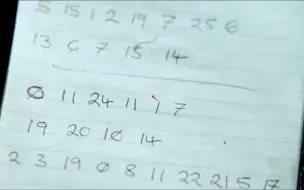 5 15 1 2 19 7 25 6
13 6 7 15 14
0 11 24 11 1 7
19 20 10 14
2 3 19 0 8 11 22 21 5 17